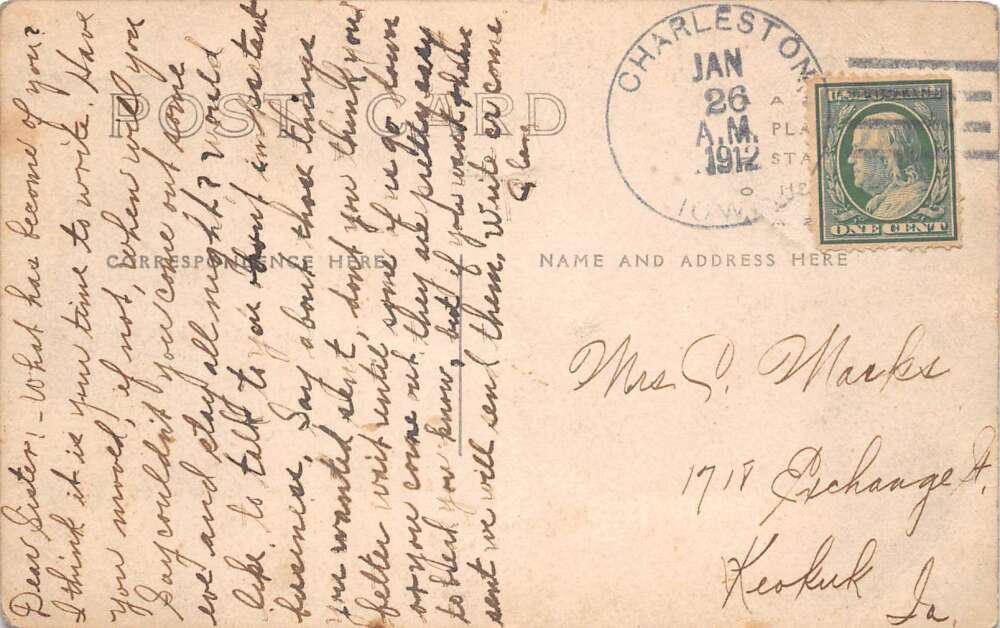 POST CARD
CORRESPONDENCE HERE
NAME AND ADDRESS HERE
CHARLESTON
JAN
26
A.M.
1912
IOWA
ONE CENT
Dear Sister:- What has become of you?
I think it is your time to write. Have
you moved, if not, when will you
Say couldn't you come out some
eve and stay all night? Would
like to talk to you about important
buseness, Say about those things
you wanted sent, don't you think you'd
better wait until some of us go down
or you come out. they are pretty easy
to bleat you know, but if you want them
sent we will send them. Write or come
Clara
Mrs C. Marks
1718 Exchange St.
Keokuk
Ia.